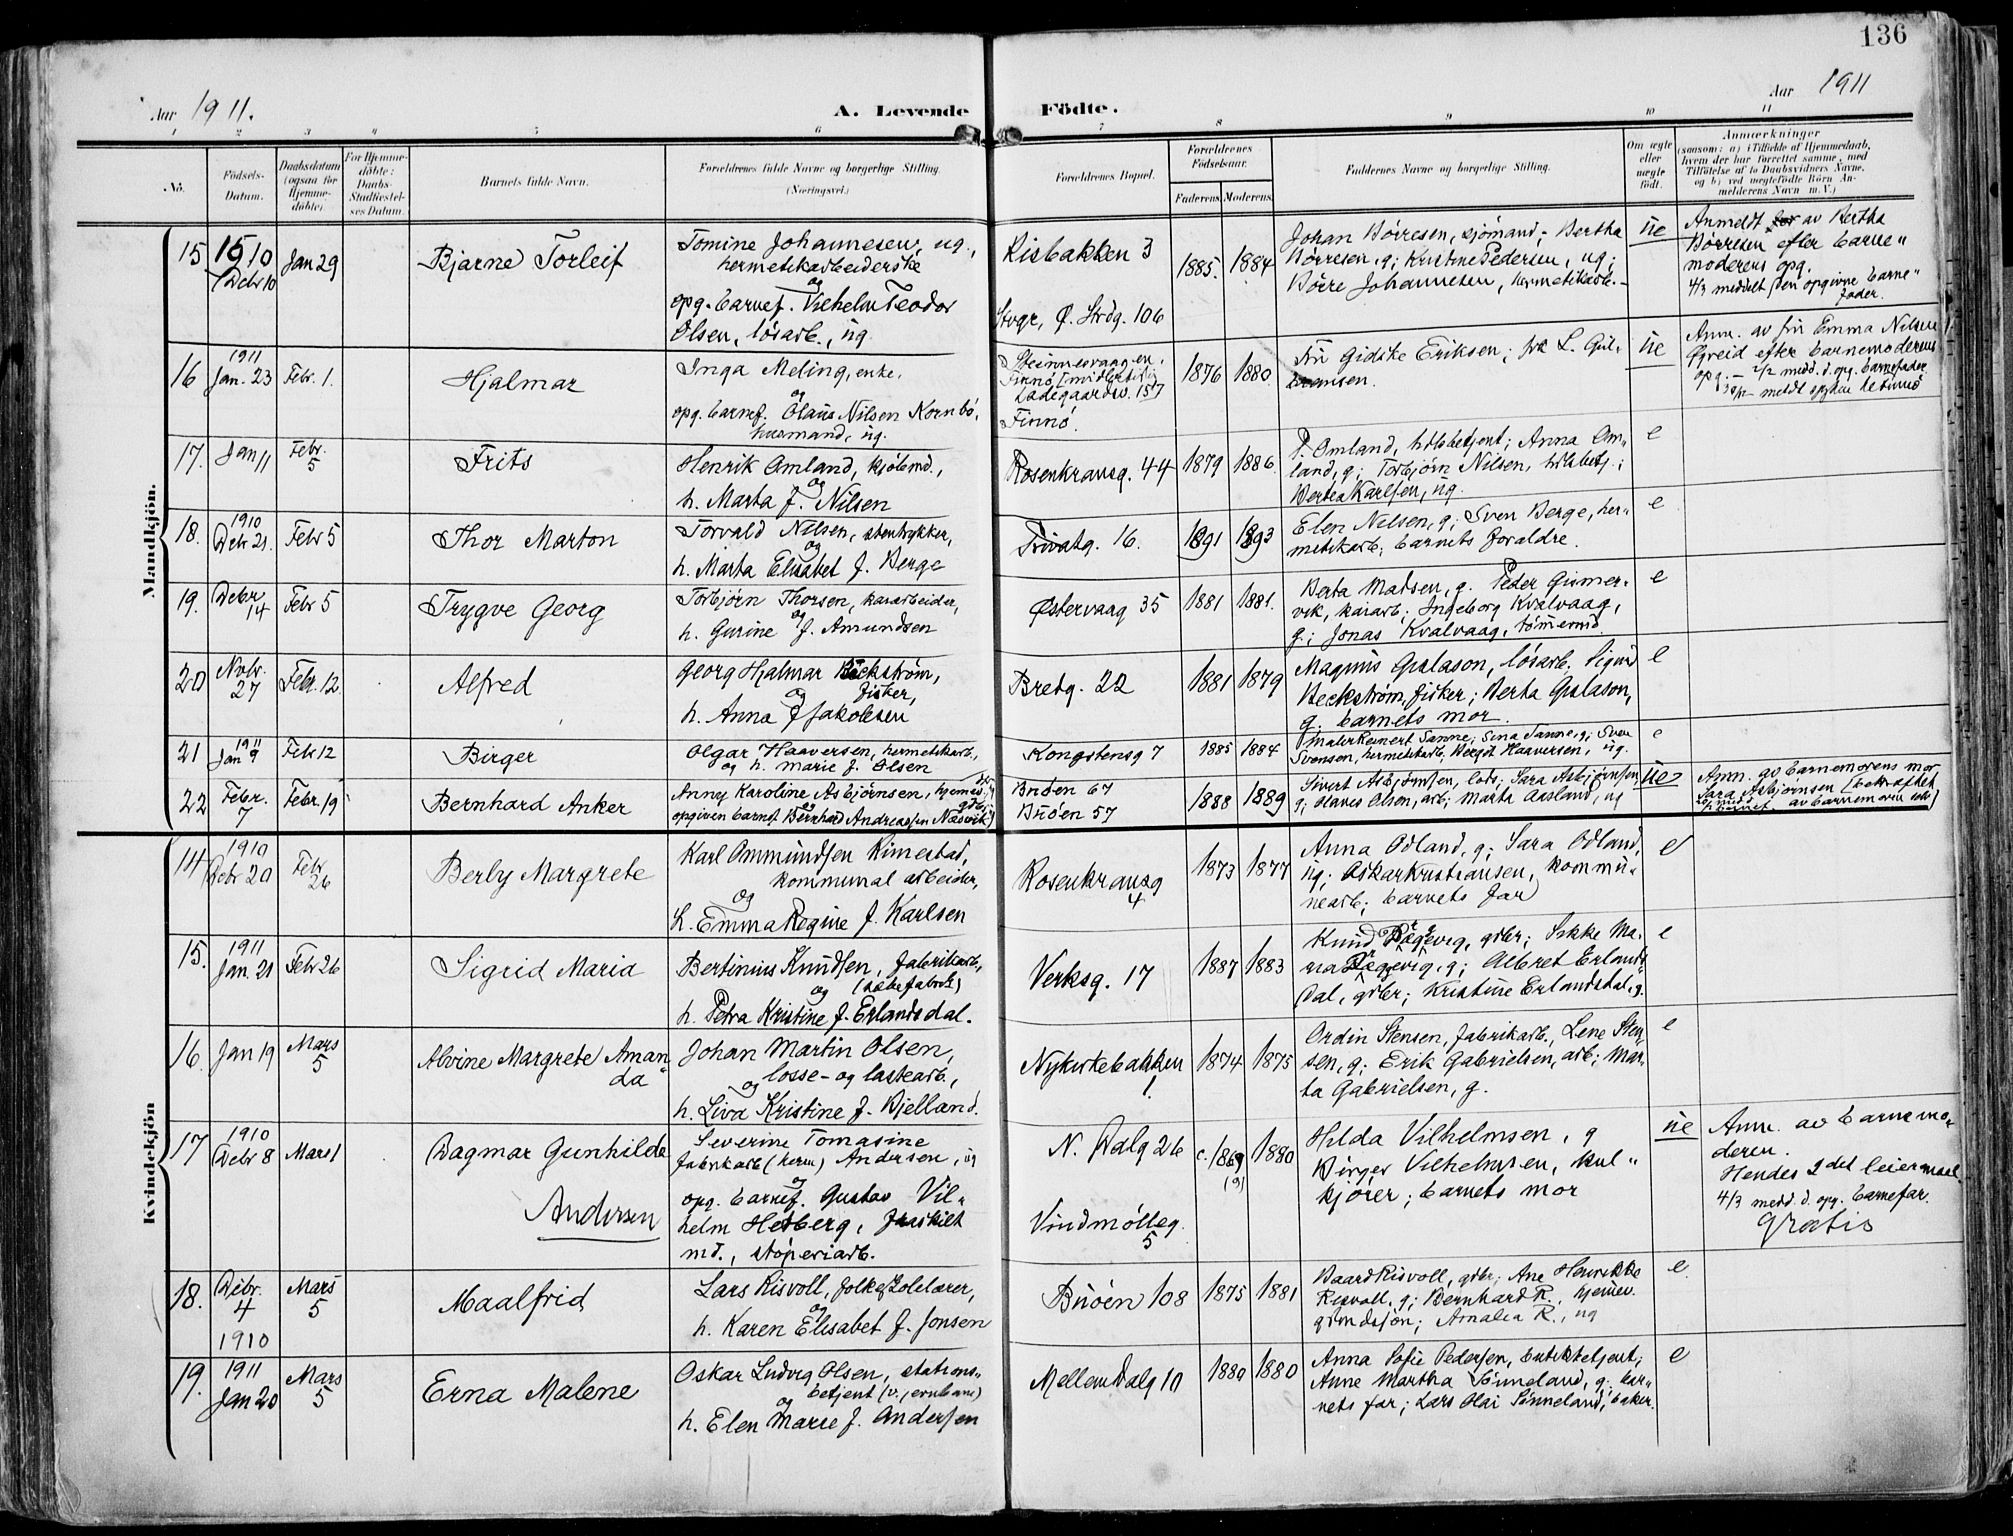 136
Aar 1911.
A. Levende Födte.
Aar 1911
1 2 3 4 5 6 7 8 9 10 11
No.
Födsels-Datum.
Daabsdatum (ogsaa for Hjemme-döbte).
For Hjemme-döbte: Daabs-Stadfæstel-ses Datum.
Barnets fulde Navn.
Forældrenes fulde Navne og borgerlige Stilling. (Næringsvei.)
Forældrenes Bopæl.
Forældrenes Födselsaar.
Faderens. Moderens.
Faddernes Navne og borgerlige Stilling.
Om ægte eller uægte födt.
Anmærkninger
(saasom: a) i Tilfælde af Hjemmedaab, hvem der har forrettet samme, med Tilföielse af to Daabsvidners Navne, og b) ved uægtefödte Börn An-melderens Navn m. V.)
Mandkjön.
15 1910 Debr 10
Jan 29
Bjarne Torleif
Tomine Johannesen, ug.,
hermetikarbeiderske
og
opg. barnef. Vilhelm Teodor
Olsen, løsarb., ug.
Risbakken 3
Stvgr, Ø. Strdg. 106
1885. 1884
Johan Børresen, sjømand; Bertha
Børresen, g; Kristine Pedersen, ug;
Børre Johannesen, hermetikarb.
ue
Anmeldt av Bertha
Børresen efter barne-
moderens opg.
4/3 meddelt den opgivne barne-
fader.
16 1911 Jan. 23
Febr. 1.
Hjalmar
Inga Meling, enke,
og
opg. barnef. Olaus Nilsen Kornbø,
husmand, ug.
Steinnesvaagen,
Finnø [midlertidig
Ladegaardsv. 157
Finnø.
1876 1880
Fru Gidske Eriksen; frk L. Gul-
bransen.
ue
Anm. av fru Emma Nilsen
Øgreid efter barnemoderens
opg. — 2/2 medd. d. opg. barnefader
17. Jan 11
Febr. 5
Frits
Henrik Omland, kjøbmd.,
og
h. Marta f. Nilsen
Rosenkransg. 44
1879 1886.
P. Omland, hdlsbetjent; Anna Om-
land, g; Torbjørn Nilsen, hdlsbetj.;
Bertea Karlsen, ug.
e
18. 1910 Debr 21.
Febr 5
Thor Marton
Torvald Nilsen, stentrykker,
og
h. Marta Elisabet f. Berge
Privatg. 16.
1891 1893
Elen Nilsen, g; Sven Berge, her-
metikarb; barnets forældre.
e
19. Debr 14
Febr 5
Trygve Georg
Torbjørn Thorsen, kaiarbeider,
og
h. Gurine f. Amundsen
Østervaag 35
1881 1881.
Berta Madsen, g. Peder Gimer-
vik, kaiarb; Ingeborg Kvalvaag,
g; Jonas Kvalvaag, tømmermd.
e
20 Nvbr. 27
Febr. 12
Alfred
Georg Hjalmar Beckstrøm,
fisker,
og
h. Anna f Jakobsen
Bredg. 22
1881 1879
Magnus Gislason, løsarb. Sigurd
Beckstrøm, fisker; Berta Gislason,
g. barnets mor.
e
21 1911 Jan 9
Febr 12
Birger
Olgar Haaversen, hermetikarb.,
og h. Marie f. Olsen
Kongstensg 7
1885 1884
Maler Reinert Sanne; Sina Sanne, g; Sven
Svensen, hermetikarb, Bergit Haaversen, ug.
e
22 Febr. 7
Febr. 19
Bernhard Anker
Anney Karoline Asbjørnsen, hjemme
og
opgiven barnef. Bernhard Andreassen Næsvik
Buøen 67
Buøen 57
1888 1889
Sivert Asbjørnsen, lods; Sara Asbjørnsen
g; Olaves Olsen, arb; Marta Aasland, ug
ue
Anm. av barnemorens mor
Sara Asbjørnsen [bekræftet
av barnemoren selv]
Kvindekjön
14 1910 Debr 20
Febr 26
Berly Margrete
Karl Ommundsen Rimestad,
kommunal arbeider,
og
h. Emma Regine f. Karlsen
Rosenkransg
4
1873 1877
Anna Odland, g; Sara Odland,
ug; Oskar Kristiansen, kommu-
nearb; barnets far
e
15. 1911 Jan. 21
Febr 26
Sigrid Maria
Bertinius Knudsen, fabrikarb.,
(sæbefabrik)
og
h. Petra Kristine f. Erlandsdal.
Verksg. 17
1887 1883
Knud Rægevig, grbr; Sikke Ma-
ria Rægevig, g; Albret Erlands-
dal, grbr; Kristine Erlandsdal, g.
e
16. Jan 19
Mars 5
Alvine Margrete Aman-
da
Johan Martin Olsen,
losse- og lastearb.,
og
h. Liva Kristine f. Bjelland.
Nykirkebakken
1.
1874 1875
Ordin Stensen, fabrikarb., Lene Sten-
sen, g; Erik Gabrielsen, arb; Mar-
ta Gabrielsen, g.
e
17 1910 Debr 8
Mars 1
Dagmar Gunhilde
Andersen
Severine Tomasine
fabrikarb (herm) Andersen, ug
og
opg. barnef. Gustav Vil-
helm Hetberg, fraskilt
md., støperiarb.
N. Dalg 26
Vindmølleg.
5
c. 1869 (?) 1880
Hilda Vilhelmsen, g
Birger Vilhelmsen, kul-
kjører; barnets mor
ue
Anm. av barnemo-
deren.
Hendes 2det leiermaal
4/3 medd. d. opg. barnefar.
Gratis
18. Debr. 4 1910
Mars 5
Maalfrid
Lars Risvoll, folkeskolelærer,
og
h. Karen Elisabet f. Jonsen
Buøen 108
1875 1881
Baard Risvoll, grbr; Ane Henrikke
Risvoll, g; Bernhard R., hjemmev.
grmdssøn; Amalia R., ug
e.
19. 1911 Jan 20
Mars 5
Erna Malene
Oskar Ludvig Olsen, stations-
betjent (v. jernbane)
og
h. Elen Marie f. Andersen
Mellemdalg 10
1880 1880
Anna Sofie Pedersen, butikbetjent;
Anne Martha Sønneland, g. bar-
nets far; Lars Olai Sønneland, baker.
e